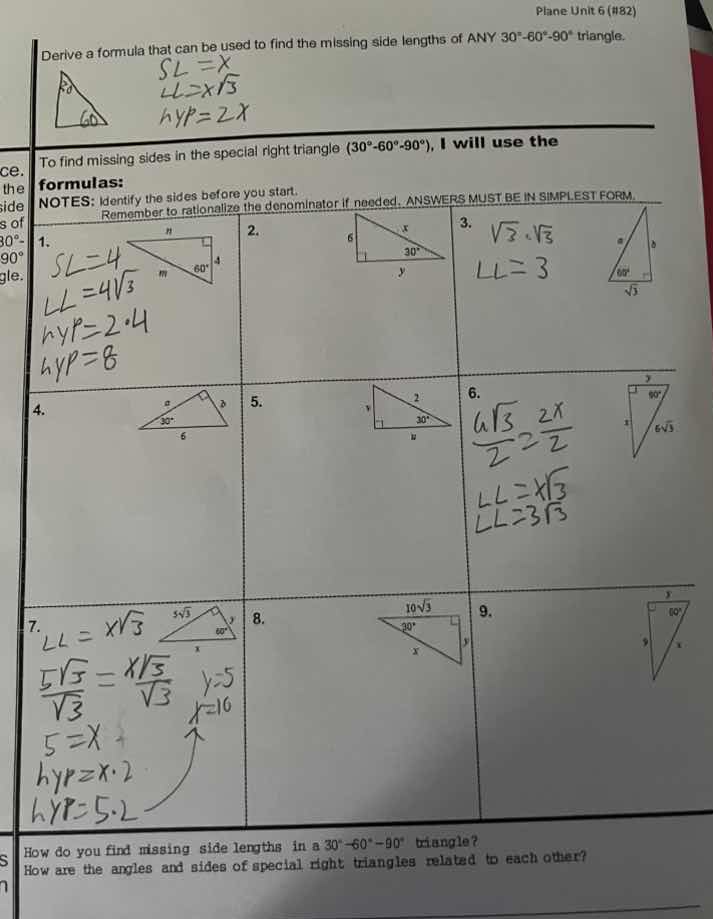 Plane Unit 6 (#82)
Derive a formula that can be used to find the missing side lengths of ANY 30°-60°-90° triangle.
30
60
SL = x
LL = x√3
hyp = 2x
ce.
the
side
s of
30°-
90°
gle.
To find missing sides in the special right triangle (30°-60°-90°), I will use the
formulas:
NOTES: Identify the sides before you start.
Remember to rationalize the denominator if needed. ANSWERS MUST BE IN SIMPLEST FORM.
1.
n
m
60°
4
SL = 4
LL = 4√3
hyp = 2·4
hyp = 8
2.
6
x
30°
y
3.
√3·√3
LL = 3
a
b
60°
√3
4.
a
b
30°
6
5.
v
2
30°
u
6.
6√3/2 = 2x/2
LL = x√3
LL = 3√3
y
60°
x
6√3
7.
LL = x√3
5√3/√3 = x√3/√3
5 = x
hyp = x·2
hyp = 5·2
y=5
x=10
5√3
y
60°
x
8.
10√3
30°
y
x
9.
y
60°
9
x
S
n
How do you find missing side lengths in a 30°-60°-90° triangle?
How are the angles and sides of special right triangles related to each other?